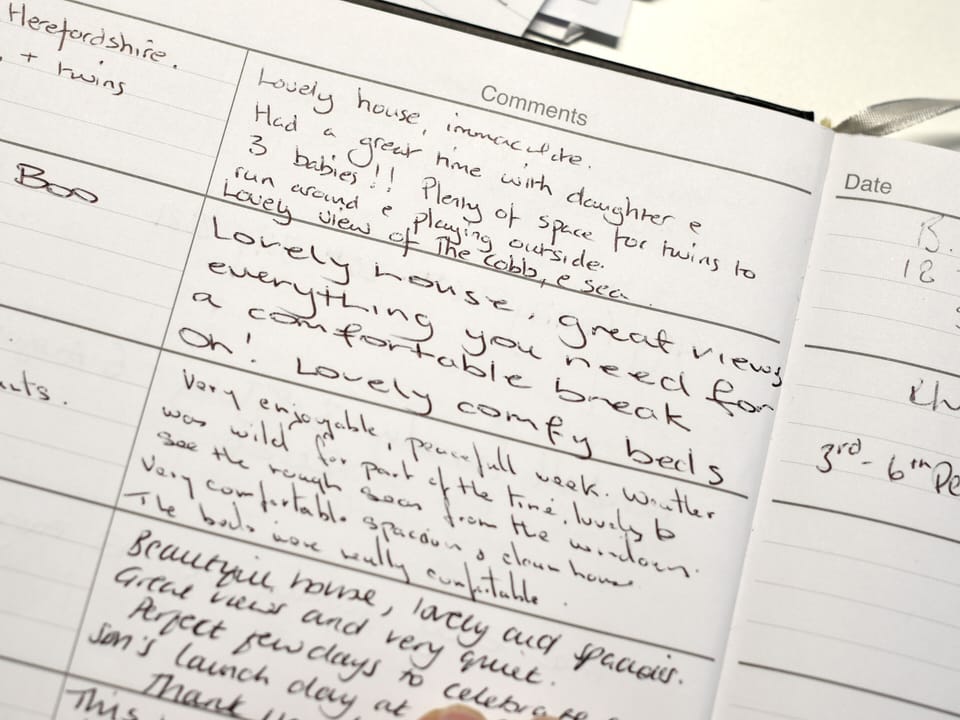 Herefordshire.
+ twins
Comments
Lovely house, immaculate.
Had a great time with daughter &
3 babies!! Plenty of space for twins to
run around & playing outside.
Lovely view of The Cobb, & sea.
Boo
Lovely house, great views
everything you need for
a comfortable break
Oh! Lovely comfy beds
Very enjoyable, peacefull week. Weather
was wild for part of the time, lovely to
see the rough seas from the windows.
Very comfortable spacious & clean house
The beds were really comfortable.
Beautiful house, lovely and spacious.
Great views and very quiet.
Perfect few days to celebrate
son's launch day at
Thank
This
Date
18
3rd - 6th De